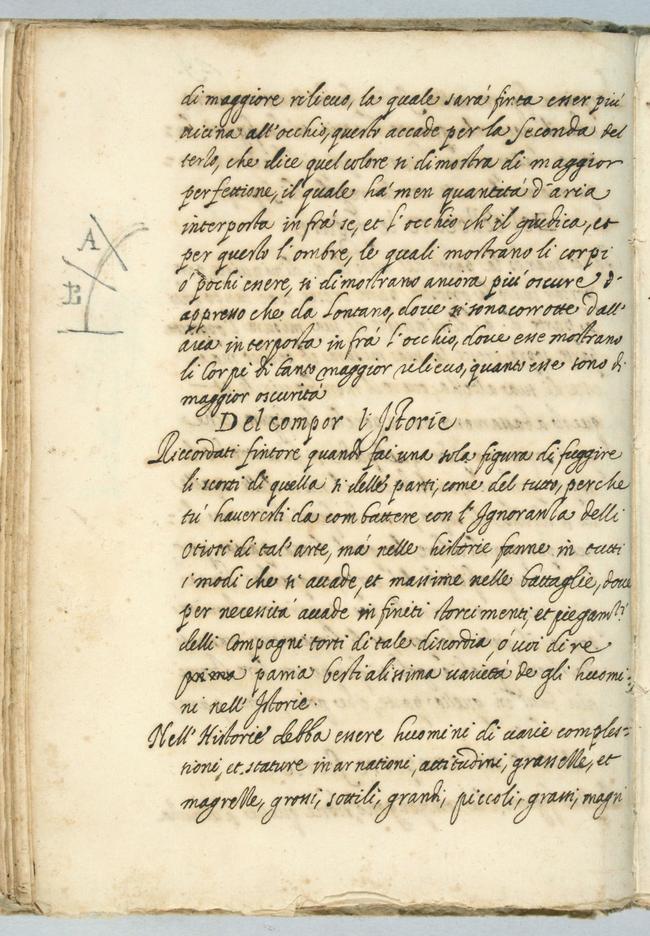 di maggiore rilieuo, la quale sarà finta esser più
uicina all'occhio, questo accade per la seconda del
terzo, che dice quel colore si dimostra di maggior
perfettione, il quale há men quantitá d'aria
interposta infrá se, et l'occhio ch'il giudica, et
per questo l'ombre, le quali mostrano li corpi
ó pochi essere, si dimostrano ancora piú oscure d'
appresso che da lontano, doue si sono corrotte dall'
aria interposta infrá l'occhio, doue esse mostrano
li Corpi di tanto maggior rilieuo, quanto esse sono di
maggior oscuritá
Del compor l'Istorie
A
E
Riccordati fintore quando fai una sola figura di fuggire
li scorti di quella si delle parti, come del tutto, perche
tú haueresti da combattere con l'Ignoranza delli
otiosi di tal' arte, má nelle historie fanne in tutti
i modi che ti accade, et massime nelle battaglie, doue
per necessitá accade infiniti storcimenti, et piegam.ti
delli Compagni torti di tale discordia, ó uoi dire
pazzia bestialissima uarietá de gli huomi-
ni nell'Istorie.
Nell'Historie debba essere huomini di uarie comples-
sioni, et stature inarnationi, attitudini, grasselle, et
magrelle, grossi, sottili, grandi, piccoli, grassi, magri